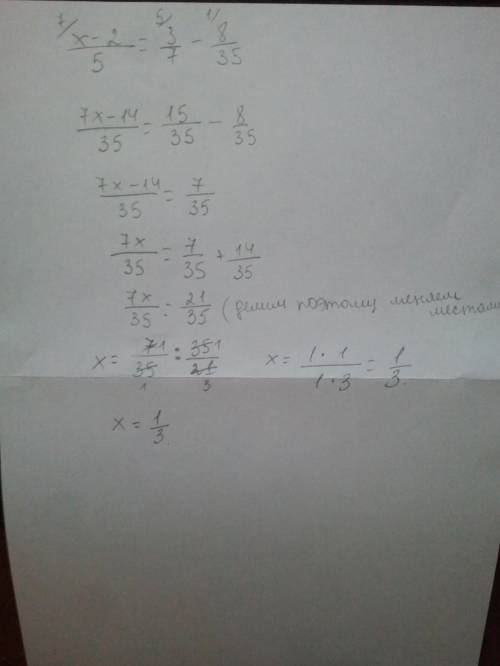 7/ (x-2)/5 = 5/ 3/7 - 1/ 8/35
(7x-14)/35 = 15/35 - 8/35
(7x-14)/35 = 7/35
7x/35 = 7/35 + 14/35
7x/35 = 21/35 (делим поэтому меняем местами
x = 71/351 : 351/213 x = (1·1)/(1·3) = 1/3.
x = 1/3.